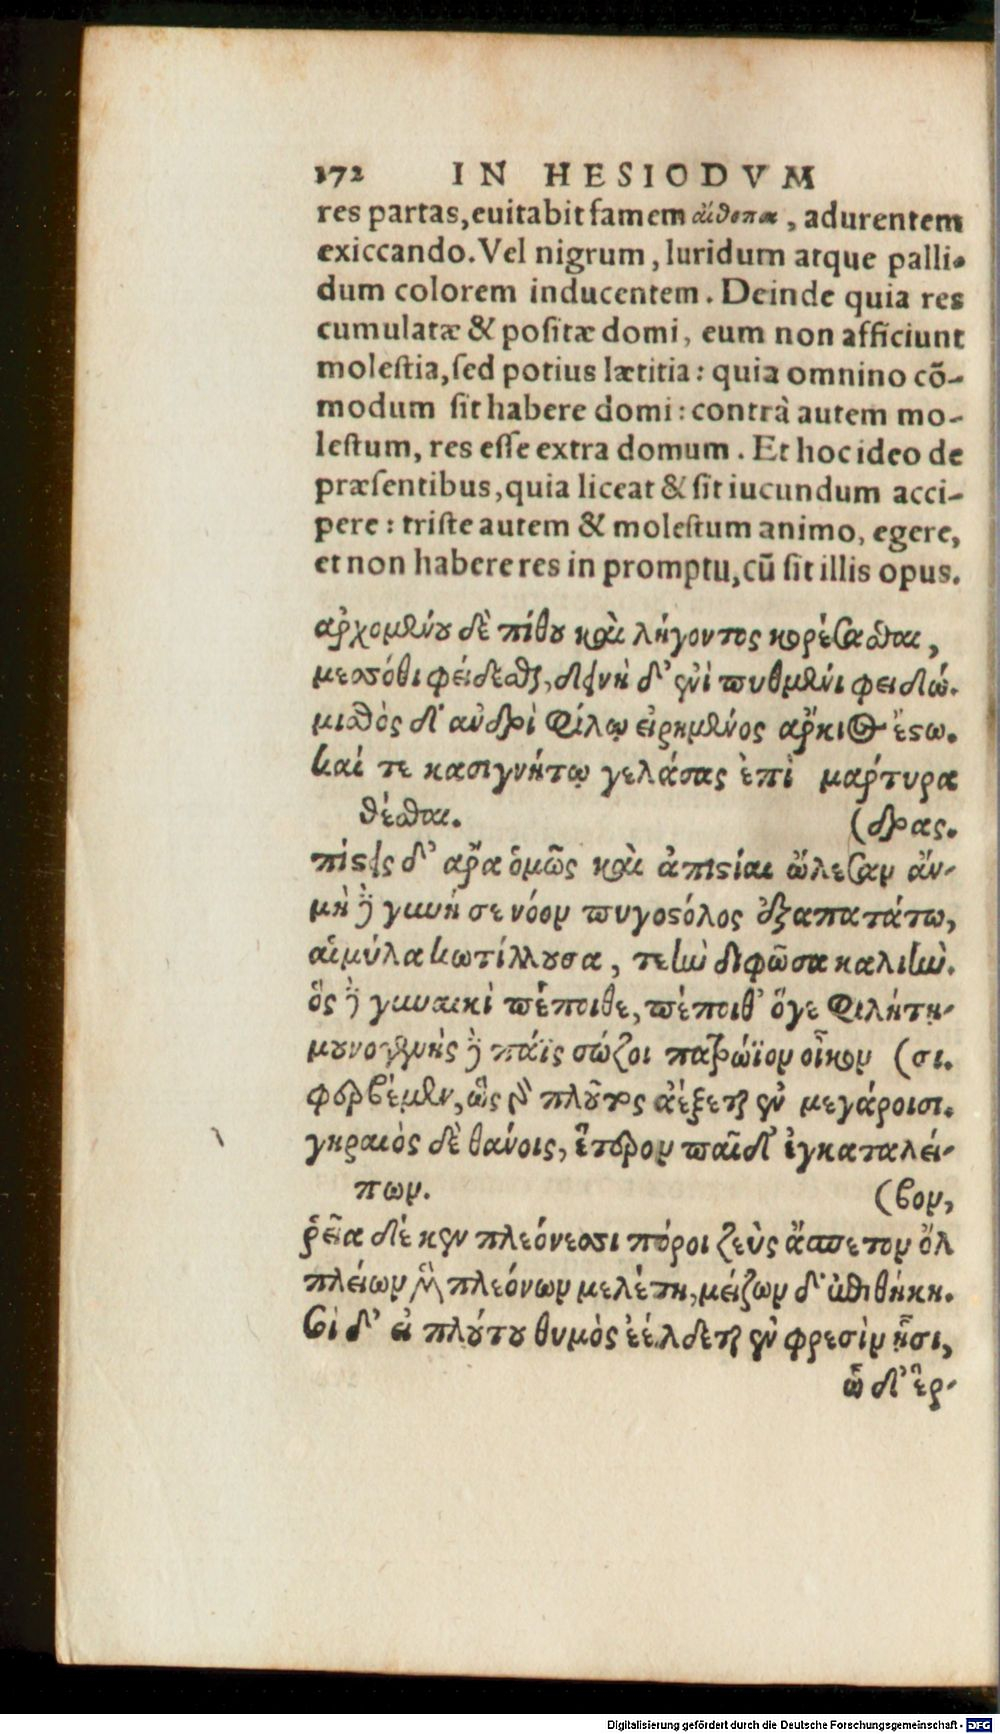 172 IN HESIODVM
res partas, euitabit famem αἴθοπα, adurentem
exiccando. Vel nigrum, luridum atque palli-
dum colorem inducentem. Deinde quia res
cumulatæ & positæ domi, eum non afficiunt
molestia, sed potius lætitia: quia omnino cõ-
modum sit habere domi: contrà autem mo-
lestum, res esse extra domum. Et hoc ideo de
præsentibus, quia liceat & sit iucundum acci-
pere: triste autem & molestum animo, egere,
et non habere res in promptu, cũ sit illis opus.
ἀρχομένου δὲ πίθου καὶ λήγοντος κορέσασθαι,
μεσσόθι φείδεσθαι, δεινὴ δ' ἐνὶ πυθμένι φειδώ.
μισθὸς δ' ἀνδρὶ φίλῳ εἰρημένος ἄρκιος ἔστω.
καί τε κασιγνήτῳ γελάσας ἐπὶ μάρτυρα
θέσθαι. (δρας.
πίστεις δ' ἄρα ὁμῶς καὶ ἀπιστίαι ὤλεσαν ἄν-
μὴ δὲ γυνή σε νόον πυγοστόλος ἐξαπατάτω,
αἱμύλα κωτίλλουσα, τεὴν διφῶσα καλιήν.
ὃς δὲ γυναικὶ πέποιθε, πέποιθ' ὅγε φιλήτῃ-
μουνογενὴς δὲ πάϊς σώζοι πατρώϊον οἶκον (σι.
φερβέμεν, ὣς γὰρ πλοῦτος ἀέξεται ἐν μεγάροισι.
γηραιὸς δὲ θάνοις, ἕτερον παῖδ' ἐγκαταλεί-
πων. (βον,
ῥεῖα δέ κεν πλεόνεσσι πόροι ζεὺς ἄσπετον ὄλ
πλείων μὲν πλεόνων μελέτη, μείζων δ' ἐπιθήκη.
σοὶ δ' εἰ πλούτου θυμὸς ἐέλδεται ἐν φρεσὶν ᾗσι,
ὧδ' ἔρ-
Digitalisierung gefördert durch die Deutsche Forschungsgemeinschaft - DFG